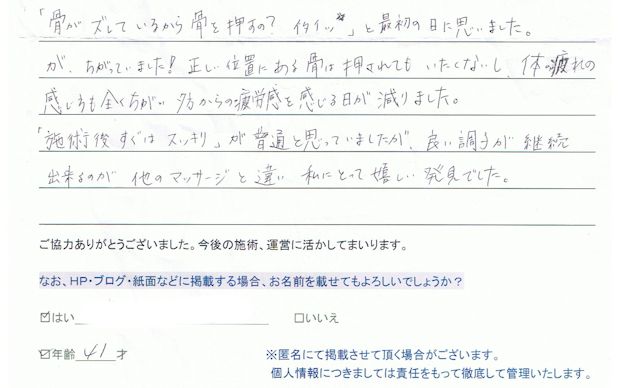 「骨がズレているから骨を押すの？イタイッ」と最初の日に思いました。
が、ちがっていました！正しい位置にある骨は押されてもいたくないし、体の疲れの
感じ方も全くちがい夕方からの疲労感を感じる日が減りました。
「施術後すぐはスッキリ」が普通と思っていましたが、良い調子が継続
出来るのが他のマッサージと違い私にとって嬉しい発見でした。
ご協力ありがとうございました。今後の施術、運営に活かしてまいります。
なお、HP・ブログ・紙面などに掲載する場合、お名前を載せてもよろしいでしょうか？
☑はい □いいえ
☑年齢 41 才 ※匿名にて掲載させて頂く場合がございます。
個人情報につきましては責任をもって徹底して管理いたします。